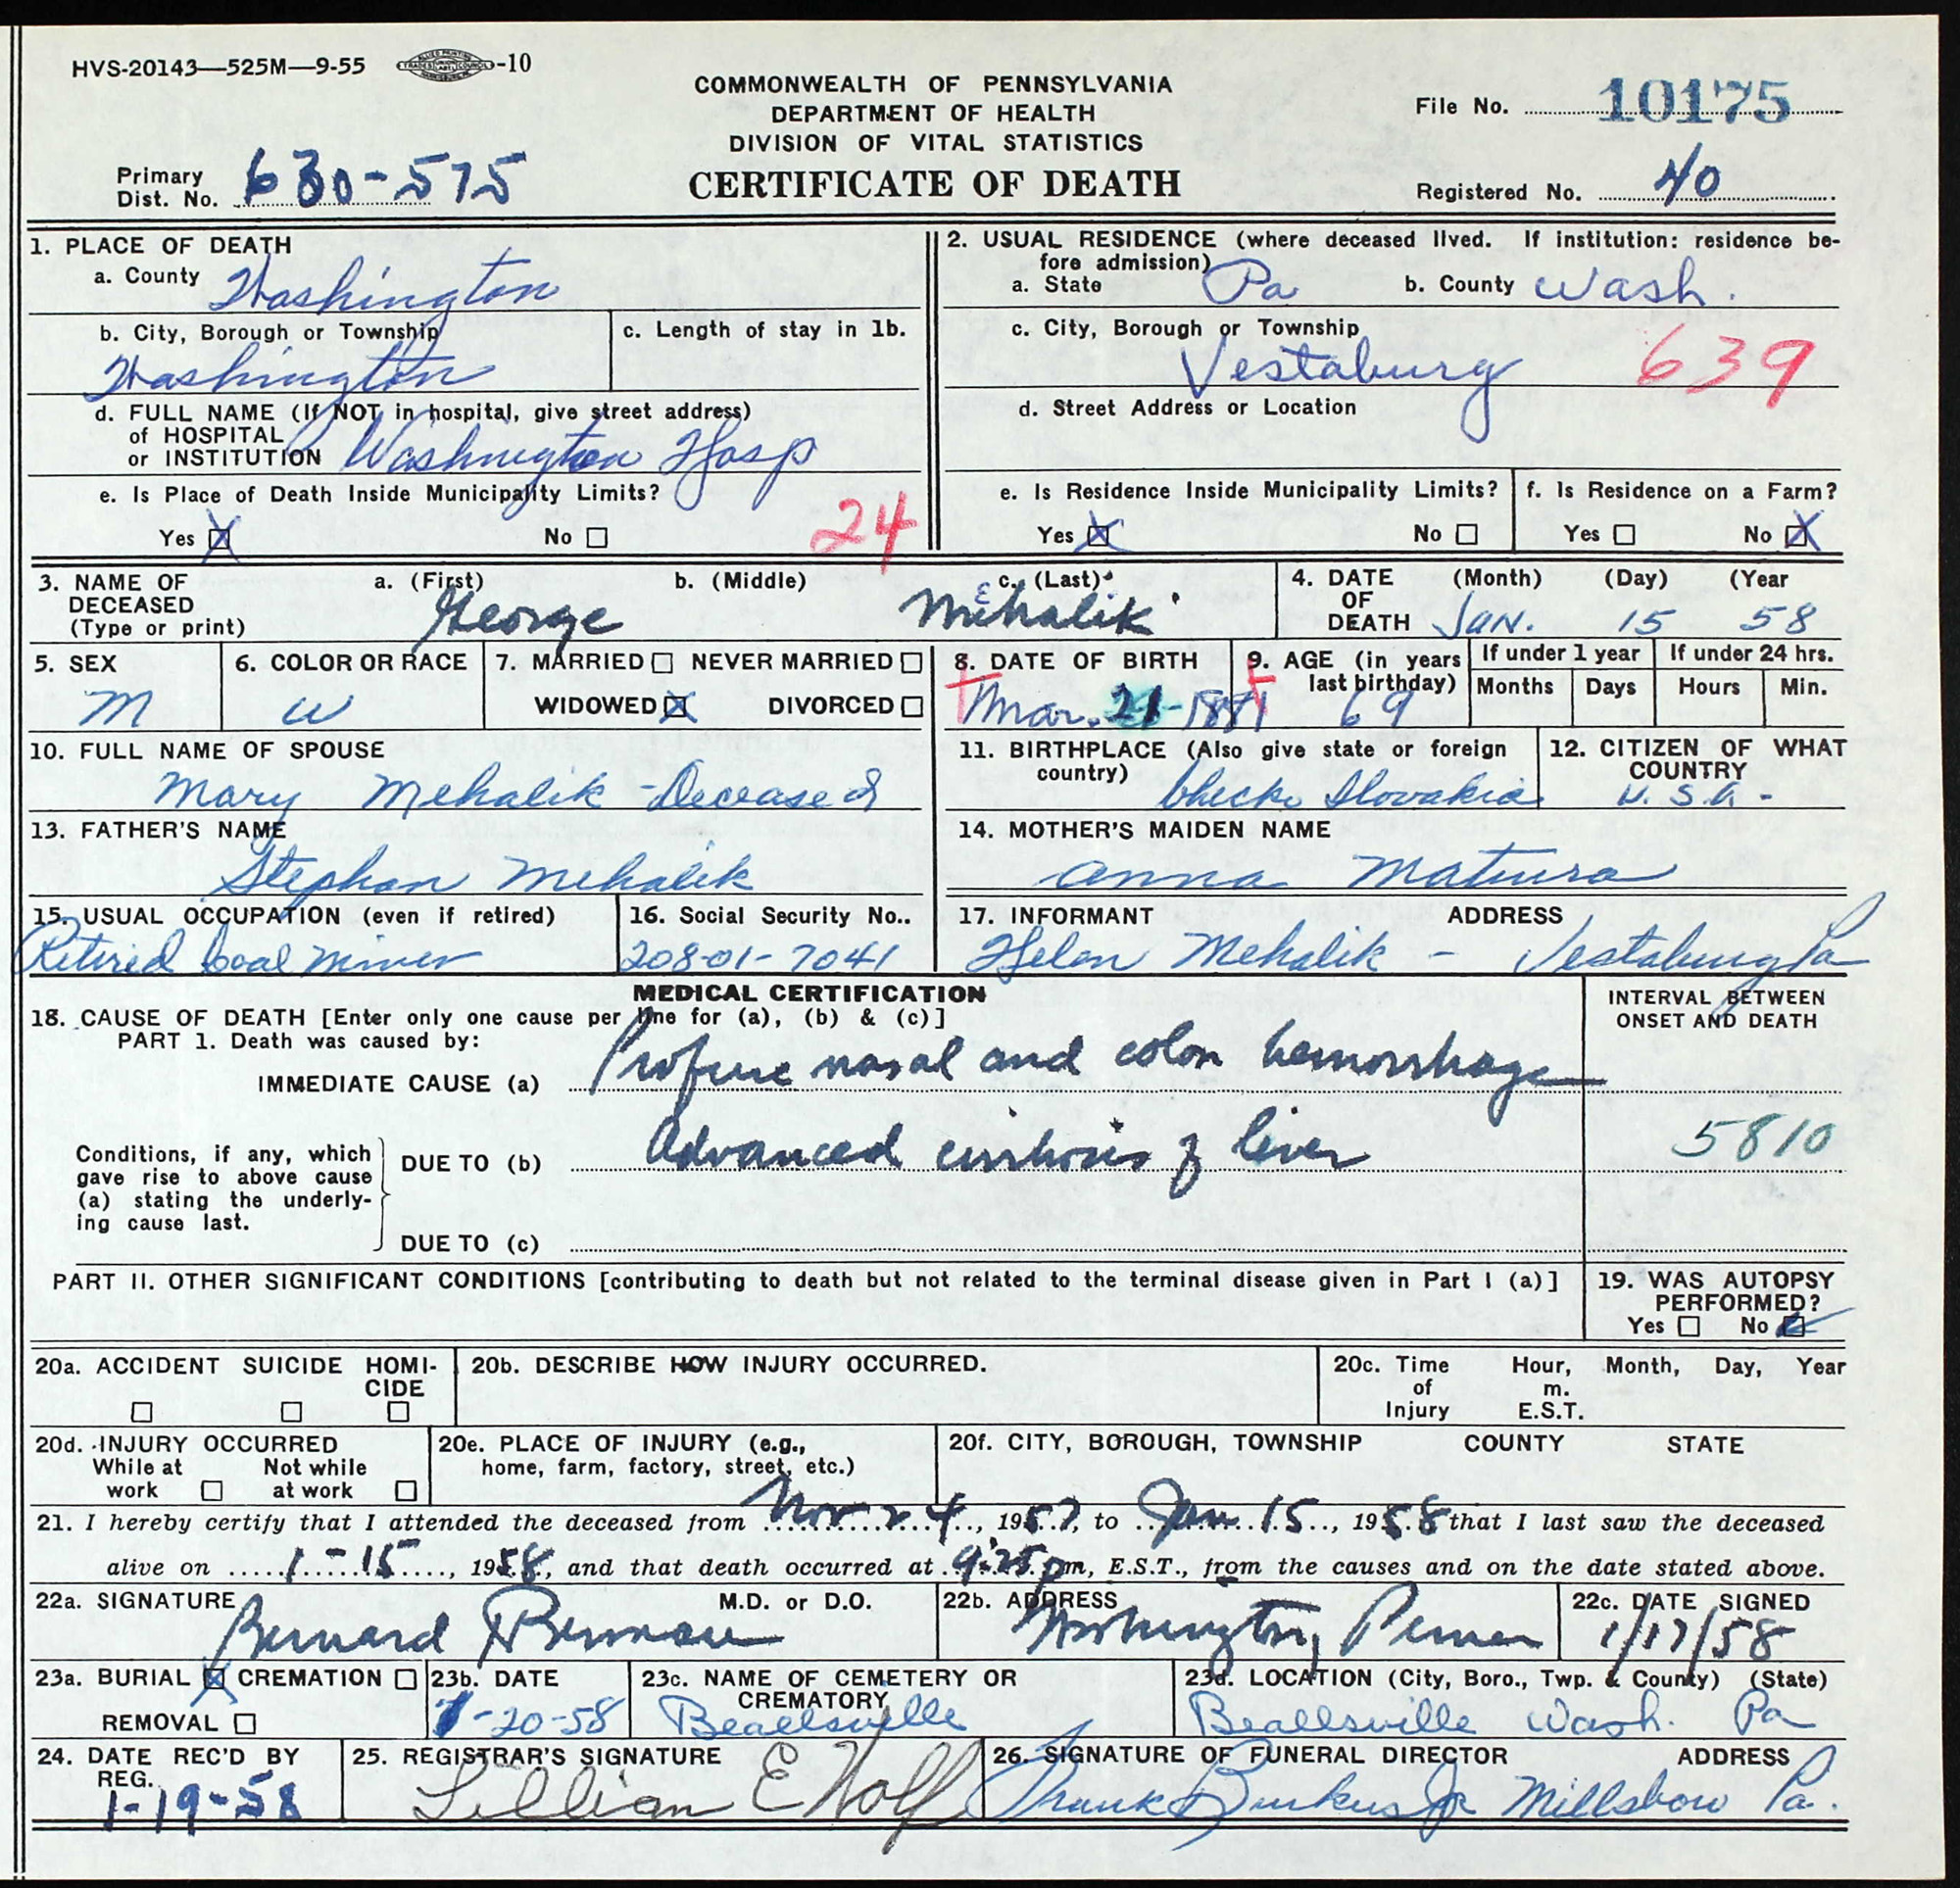 HVS-20143—525M—9-55 -10
COMMONWEALTH OF PENNSYLVANIA
DEPARTMENT OF HEALTH
DIVISION OF VITAL STATISTICS
CERTIFICATE OF DEATH
File No. 10175
Primary Dist. No. 630-575
Registered No. 40
1. PLACE OF DEATH
a. County Washington
b. City, Borough or Township
Washington
c. Length of stay in 1b.
d. FULL NAME (If NOT in hospital, give street address)
of HOSPITAL
or INSTITUTION Washington Hosp
e. Is Place of Death Inside Municipality Limits?
Yes X No
24
2. USUAL RESIDENCE (where deceased lived. If institution: residence be-
fore admission)
a. State Pa b. County Wash.
c. City, Borough or Township
Vestaburg 639
d. Street Address or Location
e. Is Residence Inside Municipality Limits?
Yes X No
f. Is Residence on a Farm?
Yes No X
3. NAME OF DECEASED (Type or print)
a. (First) b. (Middle) c. (Last)
George Mehalik
4. DATE OF DEATH (Month) (Day) (Year
Jan. 15 58
5. SEX
M
6. COLOR OR RACE
W
7. MARRIED NEVER MARRIED
WIDOWED X DIVORCED
8. DATE OF BIRTH
Mar. 21-
9. AGE (in years last birthday)
69
If under 1 year
Months Days
If under 24 hrs.
Hours Min.
10. FULL NAME OF SPOUSE
Mary Mehalik - Deceased
11. BIRTHPLACE (Also give state or foreign country)
Checko Slovakia
12. CITIZEN OF WHAT COUNTRY
U. S. A. -
13. FATHER'S NAME
Stephan Mehalik
14. MOTHER'S MAIDEN NAME
Anna
15. USUAL OCCUPATION (even if retired)
Retired Coal Miner
16. Social Security No..
208-01-7041
17. INFORMANT ADDRESS
Helen Mehalik - Vestaburg Pa
MEDICAL CERTIFICATION
18. CAUSE OF DEATH [Enter only one cause per line for (a), (b) & (c)]
PART 1. Death was caused by:
IMMEDIATE CAUSE (a) Profuse nasal and colon hemorrhage
Conditions, if any, which
gave rise to above cause
(a) stating the underly-
ing cause last.
DUE TO (b) Advanced cirrhosis of liver
DUE TO (c)
INTERVAL BETWEEN
ONSET AND DEATH
5810
PART II. OTHER SIGNIFICANT CONDITIONS [contributing to death but not related to the terminal disease given in Part I (a)]
19. WAS AUTOPSY
PERFORMED?
Yes No
20a. ACCIDENT SUICIDE HOMI-
CIDE
20b. DESCRIBE HOW INJURY OCCURRED.
20c. Time of Injury Hour, Month, Day, Year
m.
E.S.T.
20d. INJURY OCCURRED
While at work Not while at work
20e. PLACE OF INJURY (e.g.,
home, farm, factory, street, etc.)
20f. CITY, BOROUGH, TOWNSHIP COUNTY STATE
21. I hereby certify that I attended the deceased from Nov 24, 1957, to Jan 15, 1958 that I last saw the deceased
alive on 1-15, 1958, and that death occurred at 9:25 pm, E.S.T., from the causes and on the date stated above.
22a. SIGNATURE M.D. or D.O.
Bernard Berman
22b. ADDRESS
Washington, Penna
22c. DATE SIGNED
1/17/58
23a. BURIAL X CREMATION
REMOVAL
23b. DATE
1-20-58
23c. NAME OF CEMETERY OR
CREMATORY
Beallsville
23d. LOCATION (City, Boro., Twp. & County) (State)
Beallsville Wash. Pa
24. DATE REC'D BY REG.
1-19-58
25. REGISTRAR'S SIGNATURE
Lillian E Wolf
26. SIGNATURE OF FUNERAL DIRECTOR ADDRESS
Frank Jr Millsboro Pa.